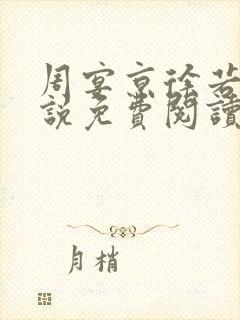 周宴京徐若
說免費閱讀
月梢